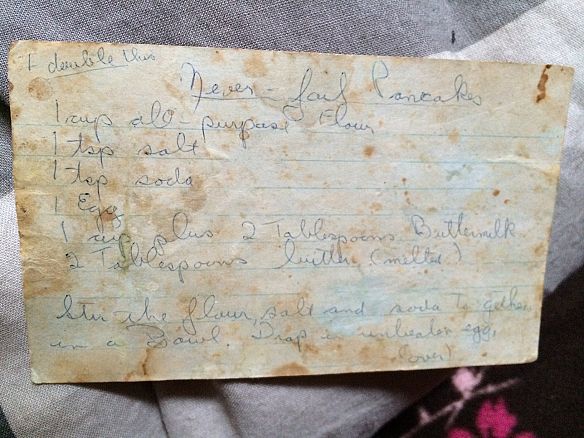 I double this
Never-fail Pancakes
1 cup all-purpose Flour
1 tsp salt
1 tsp soda
1 Egg
1 cup plus 2 Tablespoons Buttermilk
2 Tablespoons butter (melted)
Stir the flour, salt and soda together
in a Bowl. Drop in unbeaten egg,
(over)